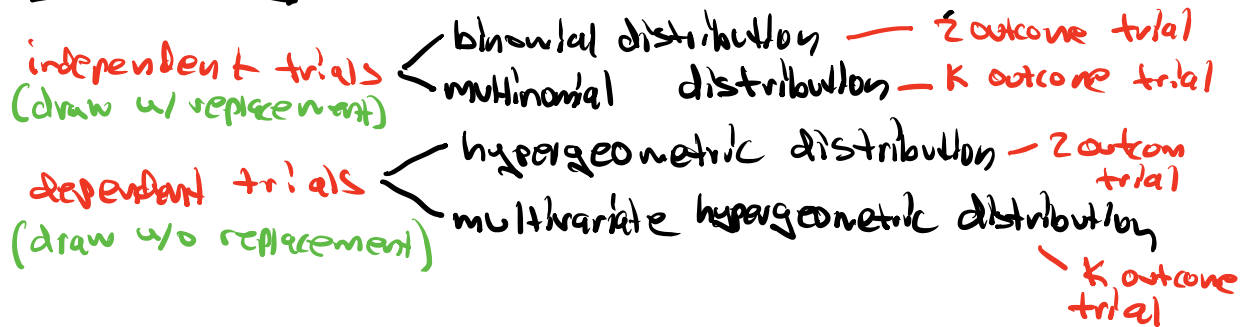 independent trials
(draw w/ replacement)
binomial distribution — 2 outcome trial
multinomial distribution — K outcome trial
dependent trials
(draw w/o replacement)
hypergeometric distribution — 2 outcom
trial
multivariate hypergeometric distribution
K outcome
trial